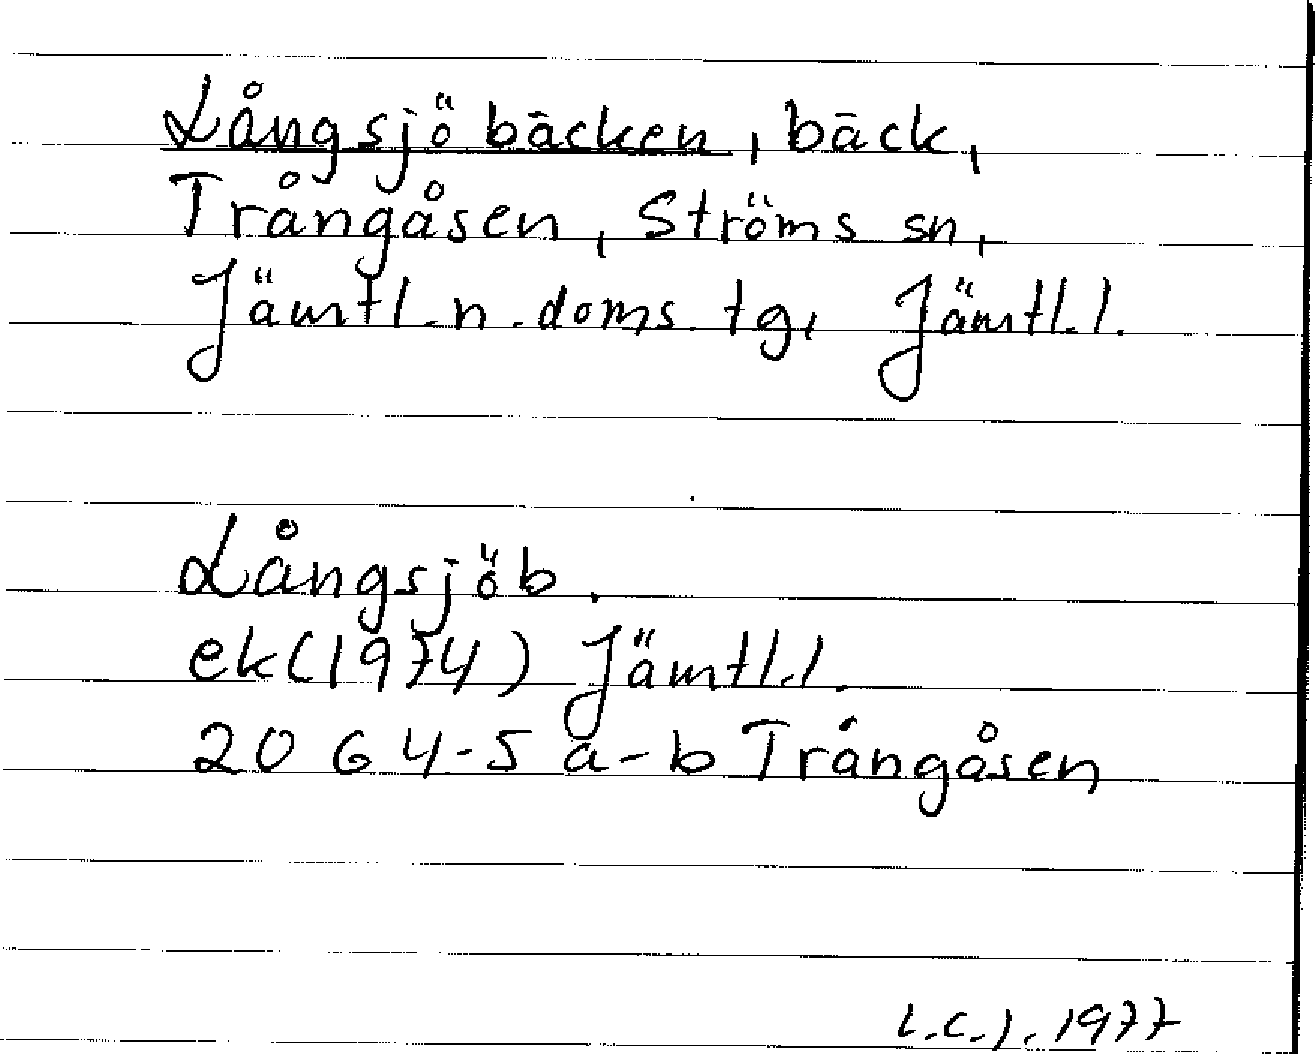 Långsjöbäcken, bäck,
Trångåsen, Ströms sn,
Jämtl.n.doms.tg, Jämtl.l.
Långsjöb.
ek(1974) Jämtl.l.
20 G 4-5 a-b Trångåsen
L.C.J. 1977